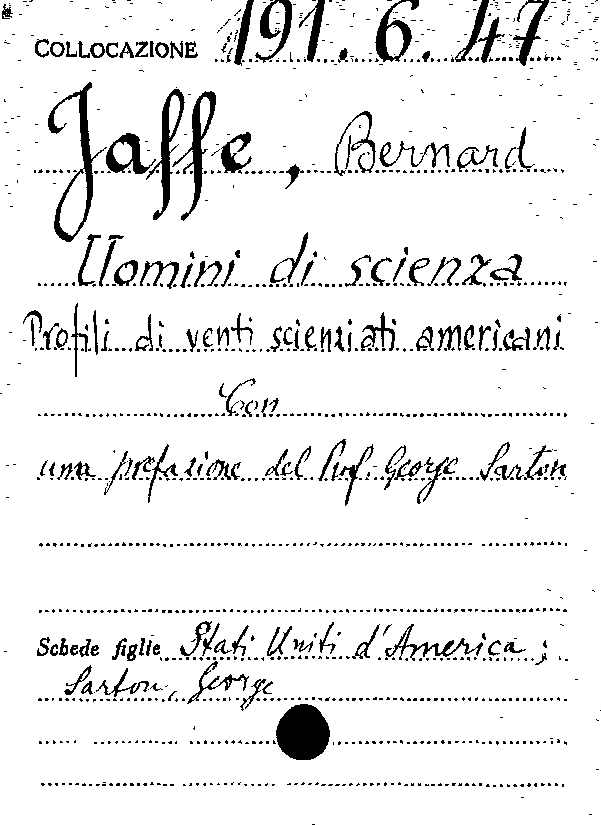 COLLOCAZIONE 191. 6. 47
Jaffe, Bernard
Uomini di scienza
Profili di venti scienziati americani
Con
una prefazione del Prof. George Sarton
Schede figlie Stati Uniti d'America;
Sarton, George